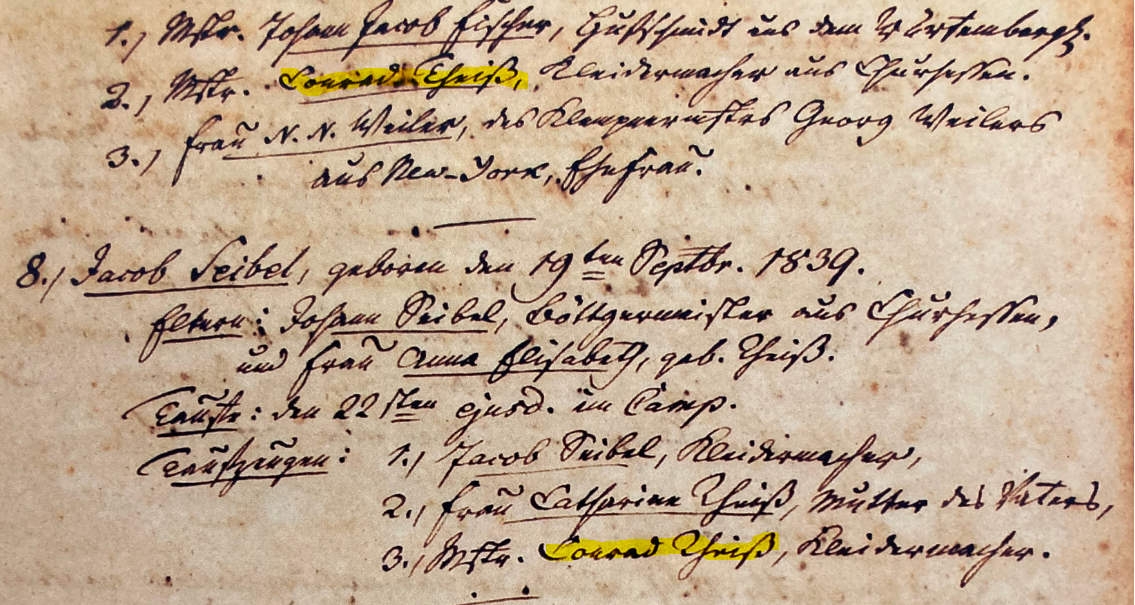 1., Mstr. Johann Jacob Fischer, Hufschmidt aus dem Würtembergh.
2., Mstr. Conrad Theiß, Kleidermacher aus Churhessen.
3., Frau N. N. Weiler, des Klempnermstrs Georg Weilers
aus New-York, Ehefrau.
8., Jacob Seibel, geboren den 19ten Septbr. 1839.
Eltern: Johann Seibel, Böttgermeister aus Churhessen,
und Frau Anna Elisabeth, geb. Theiß.
Taufe: den 22sten ejusd. im Camp.
Taufzeugen: 1., Jacob Seibel, Kleidermacher,
2., Frau Catharine Theiß, Mutter des Vaters,
3., Mstr. Conrad Theiß, Kleidermacher.